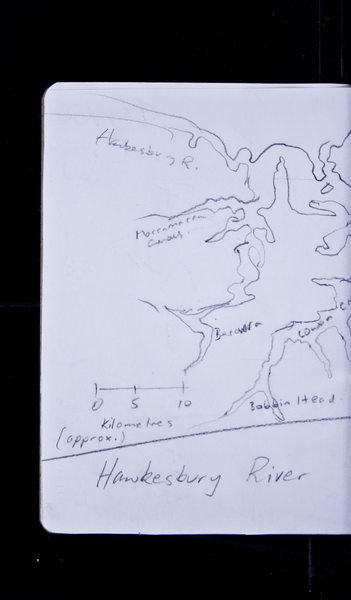 Hawkesbury R.
Marramarra
Creek.
Berowra
Cowan
Bobbin Head
0 5 10
Kilometres
(approx.)
Hawkesbury River